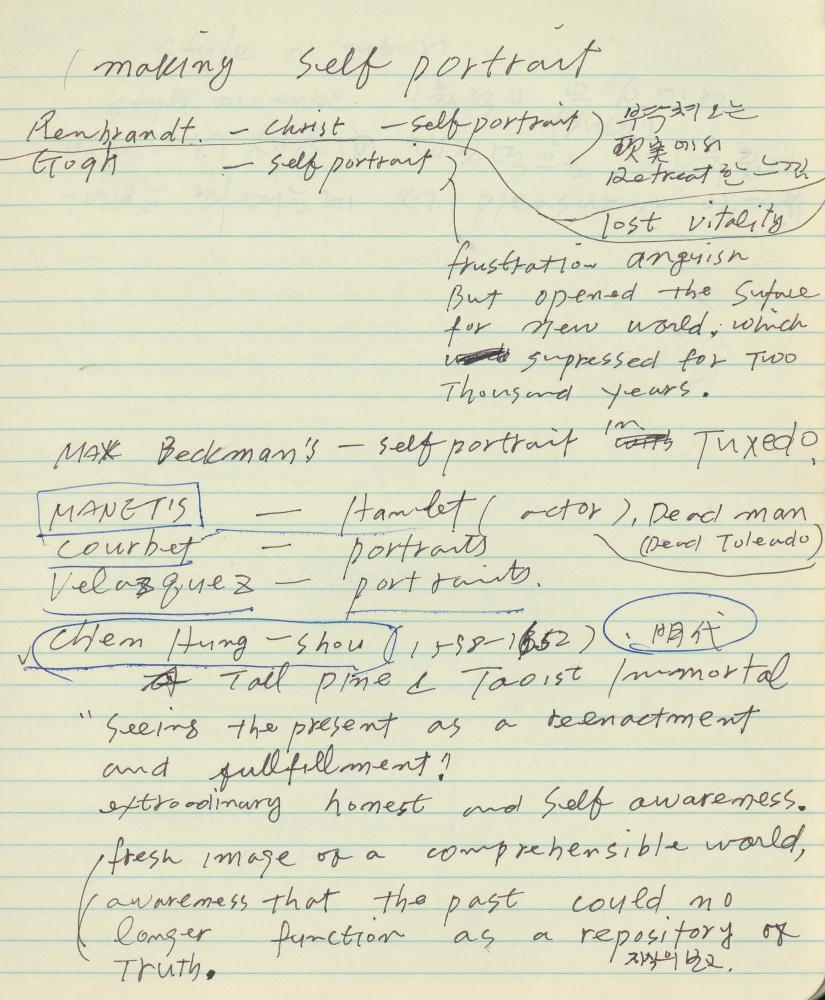 making self portrait
Rembrandt. — Christ — self portrait ) 부득처으는
Gogh — self portrait 現実에서
Retreat한 느낌
lost vitality
frustration anguish
But opened the surface
for new world, which
supressed for Two
Thousand years.
MAX Beckman's — self portrait in Tuxedo,
MANET'S — Hamlet ( actor ), Dead man
Courbet — portraits (Dead Toleado)
Velazquez — portraits.
Chen Hung-shou (1598-1652) . 明代
Tall pine & Taoist Immortal
"Seeing the present as a reenactment
and fullfillment"
extraodinary honest and Self awareness.
fresh image of a comprehensible world,
awareness that the past could no
longer function as a repository of
Truth. 지식의 보고.